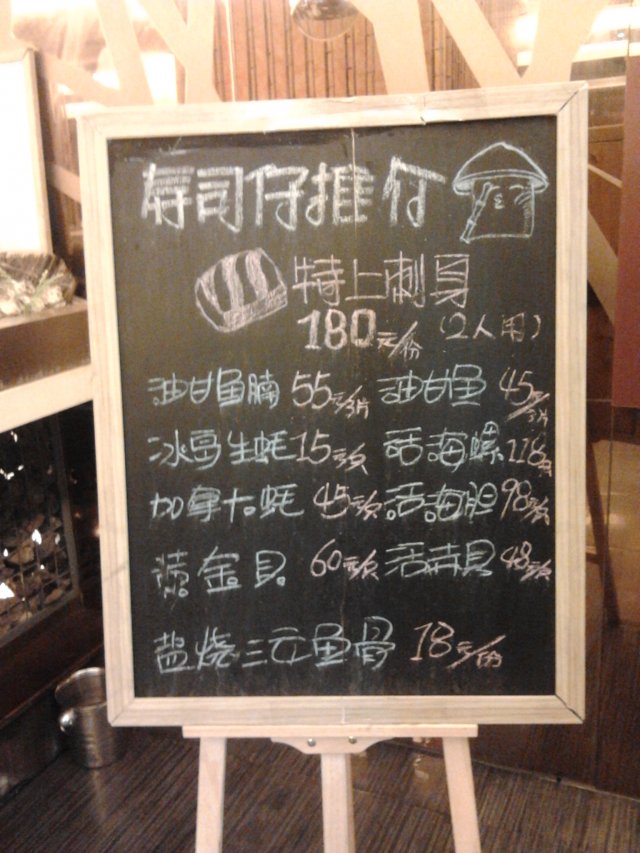 寿司仔推介
特上刺身
180元/份 (2人用)
油甘鱼腩 55元/3片 油甘鱼 45元/3片
生蚝 15元/只 活海螺 118元/只
加拿大蚝 45元/只 活海胆 98元/只
黄金贝 60元/只 活赤贝 48元/只
盐烧三文鱼骨 18元/份